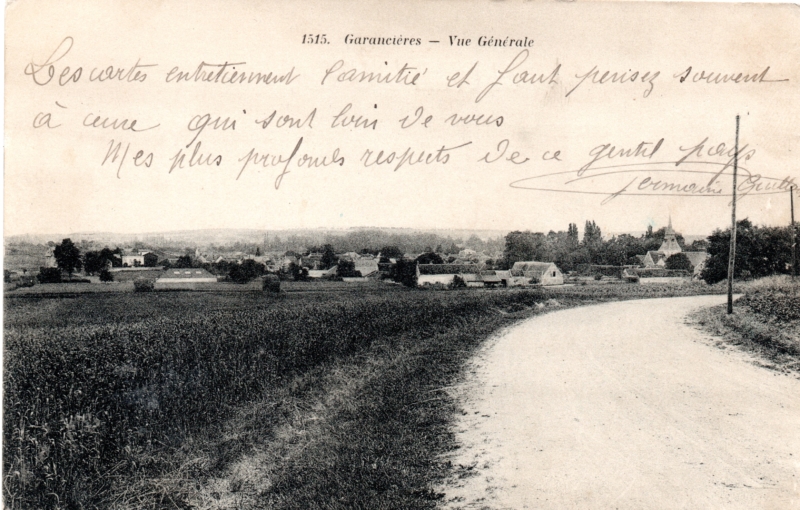 1515. Garancières — Vue Générale
Les cartes entretiennent l'amitié et faut pensez souvent
à ceux qui sont loin de vous
Mes plus profonds respects de ce gentil pays
Germaine